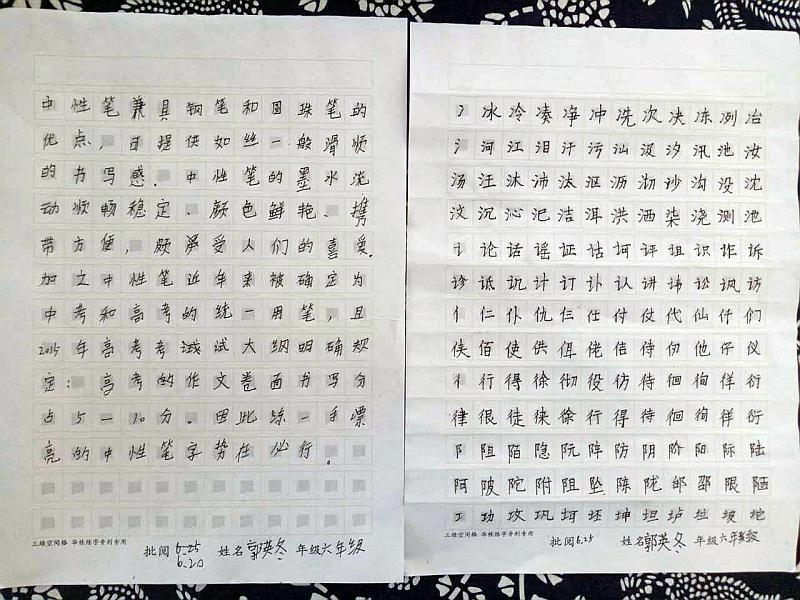 中性笔兼具钢笔和圆珠笔的
优点，可提供如丝一般滑顺
的书写感。中性笔的墨水流
动顺畅稳定、颜色鲜艳、携
带方便，颇受人们的喜爱。
加之中性笔近年来被确定为
中考和高考的统一用笔，且
2015年高考考试试大纲明确规
定：高考的作文卷面书写分
占5—10分。因此练一手漂
亮的中性笔字势在必行。
三维空间格 华栋练字专利专用
批阅 6.25 姓名 郭英冬 年级 六年级
6.20
冫冰冷凑净冲冼次决冻冽冶
氵河江泪汗污汕汲汐汛池汝
汤汪沐沛汰沤沥沏沙沟没沈
汶沉沁汜洁洱洪洒染浇测池
讠论话谣证诂诃评诅识诈诉
诊诋讥计订讣认讲讳讼讽访
亻仁仆仇仨仕付仗代仙仟们
侠佰使供佴佬佶侍份他仔仪
彳行得徐彻役彷待徊徇徉衍
律很徒徕徐行得待徊徇徉衍
阝阻陌隐阮阵防阴阶阳际陆
阿陂陀附阻坠陈陇邰邵限陋
功攻巩坷坯坤坦垆坡坨
三维空间格 华栋练字专利专用
批阅 6.25 姓名 郭英冬 年级 六年级